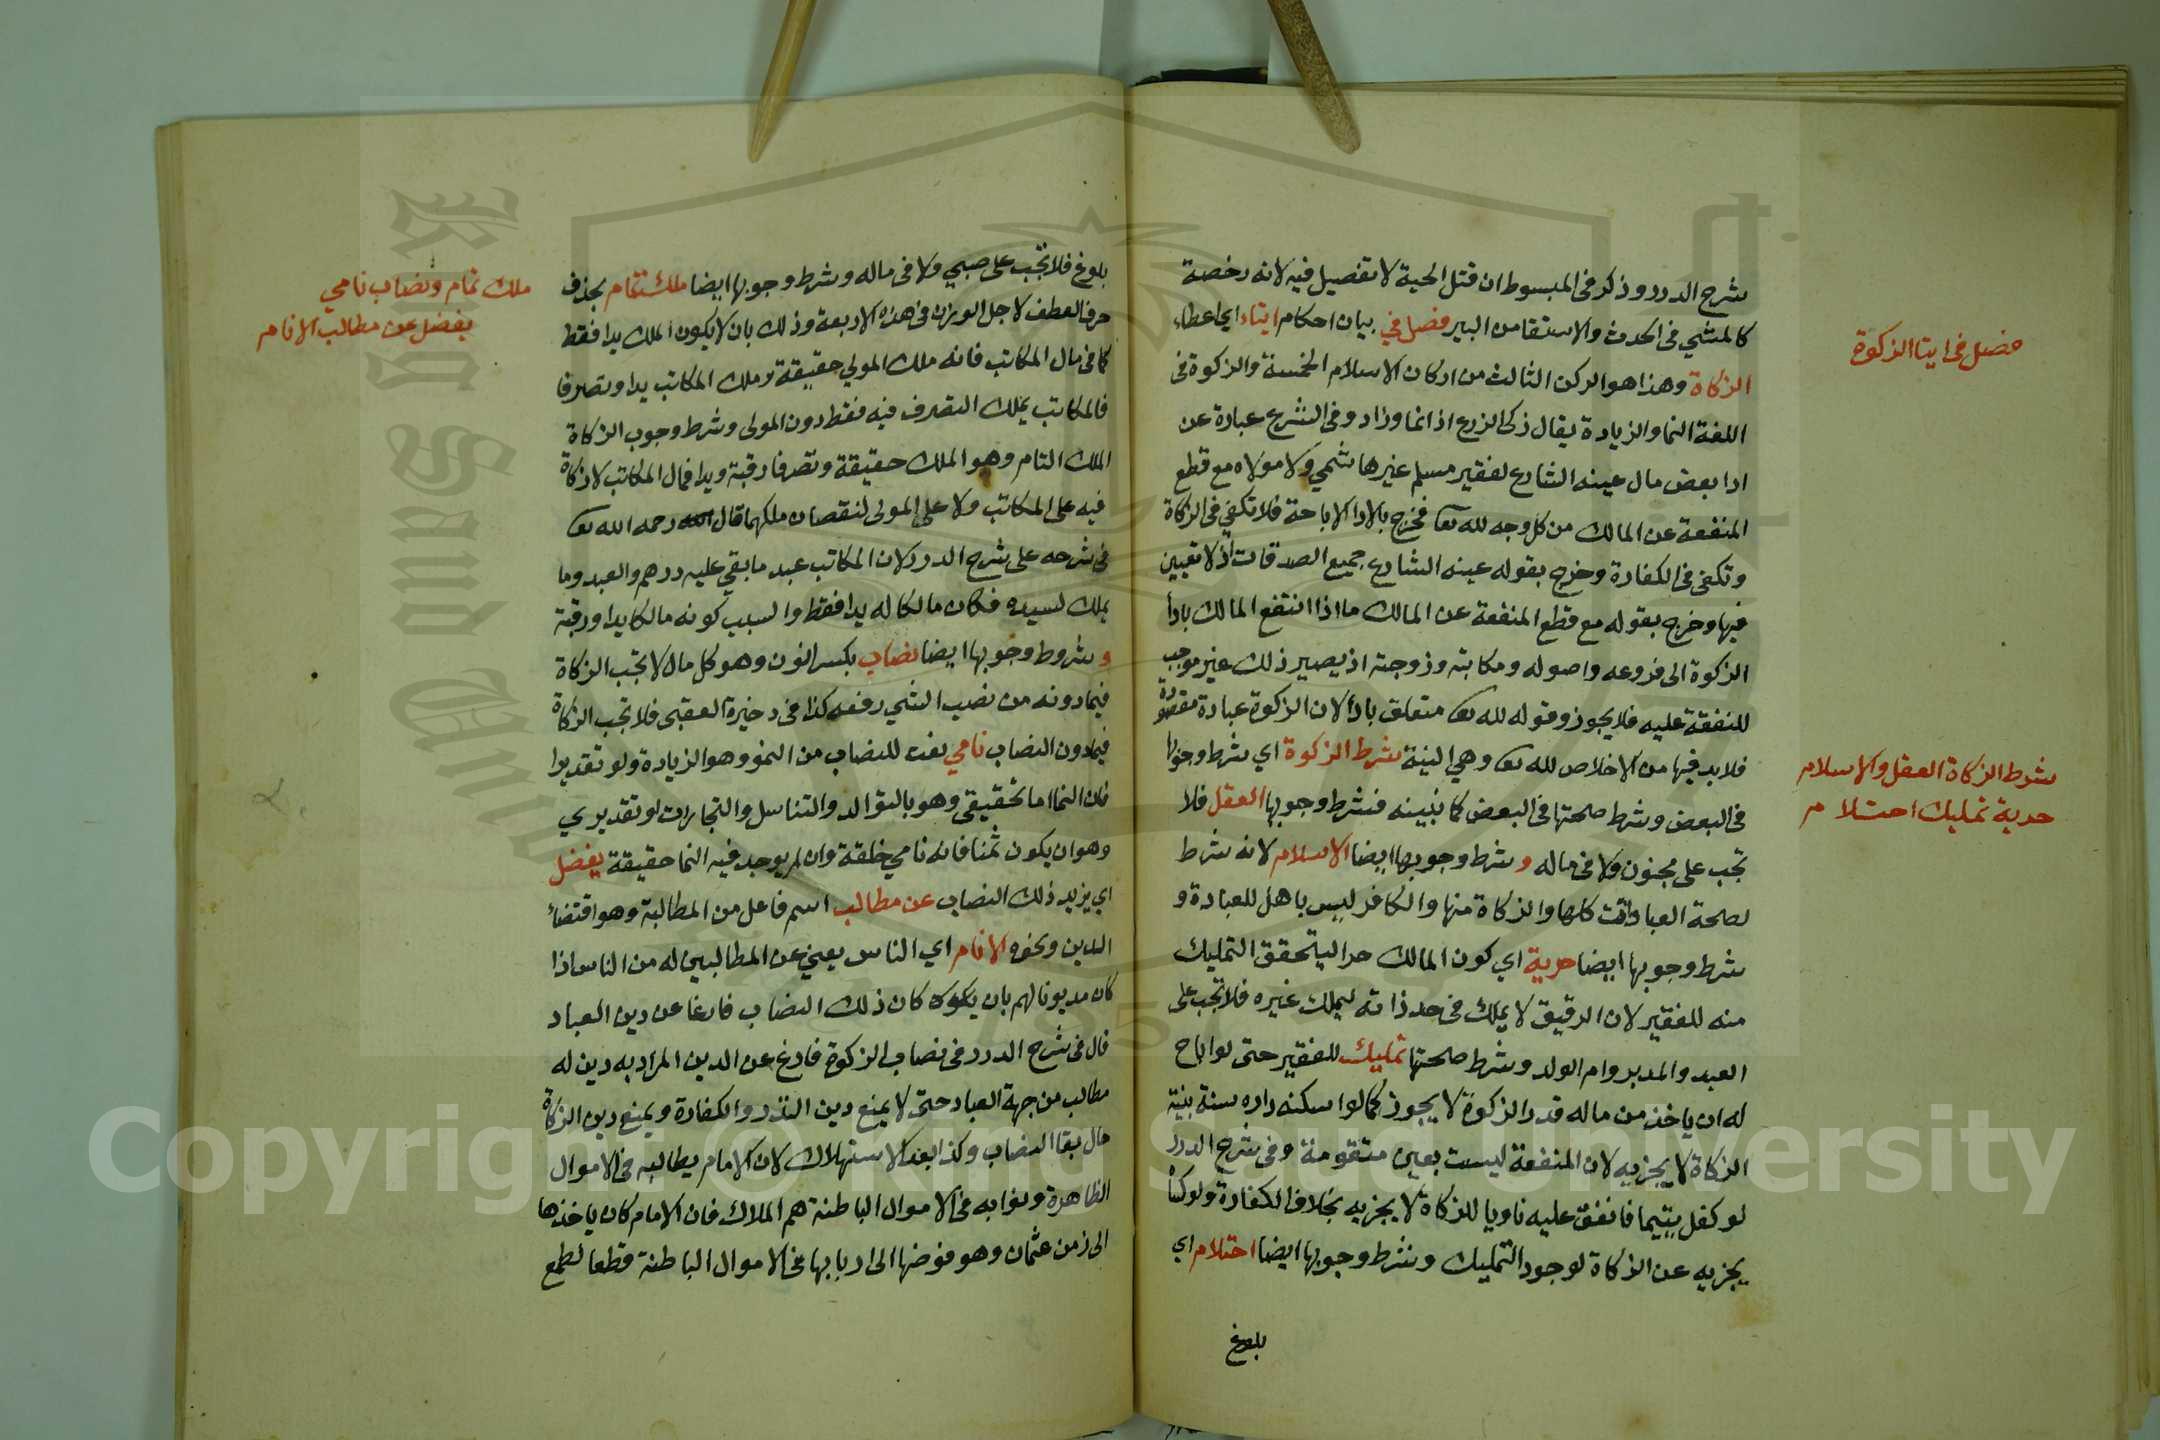 شرح الدرر وذكر فى المبسوط ان قتل الحية لا تفصيل فيه لانه رخصة
كالمشي فى الحدث والاستقا من البير فصل في بيان احكام ايتاء اي اعطاء
الزكاة وهذا هو الركن الثالث من اركان الاسلام الخمسة والزكوة فى
اللغة النما والزيادة يقال زكى الزرع اذا نما وزاد وفى الشرع عبارة عن
ادا بعض مال عينه الشارع لفقير مسلم غير هاشمي ولا مولاه مع قطع
المنفعة عن المالك من كل وجه لله تعا فخرج بالادا الاباحة فلا تكفي فى الزكاة
وتكفى فى الكفارة وخرج بقوله عينه الشارع جميع الصدقات اذ لا تعيين
فيها وخرج بقوله مع قطع المنفعة عن المالك ما اذا انتفع المالك بادأ
الزكوة الى فروعه واصوله ومكاتبه وزوجته اذ يصير ذلك غير موجب
للمنفقة عليه فلا يجوز وقوله لله تعا متعلق بادأ لان الزكوة عبادة مقصودة
فلابد فيها من الاخلاص لله تعا وهي النية شرط الزكوة اي شرط وجوبها
فى البعض وشرط صحتها فى البعض كما نبينه فشرط وجوبها العقل فلا
تجب على مجنون ولا فى ماله و شرط وجوبها ايضا الاسلام لانه شرط
لصحة العبادات كلها والزكاة منها والكافر ليس باهل للعبادة و
شرط وجوبها ايضا حرية اي كون المالك حرا ليتحقق التمليك
منه للفقير لان الرقيق لا يملك فى حد ذاته ليملك غيره فلا تجب على
العبد والمدبر وام الولد وشرط صحتها تمليك للفقير حتى لو اباح
له ان ياخذ من ماله قدر الزكوة لا يجوز كما لو اسكنه داره سنة بنية
الزكاة لا يجزيه لان المنفعة ليست بعين متقومة وفى شرح الدرر
لو كفل يتيما فانفق عليه ناويا للزكاة لا يجزيه بخلاف الكفارة ولو كساه
يجزيه عن الزكاة لوجود التمليك وشرط وجوبها ايضا احتلام اي
بلوغ
فصل فى ايتا الزكوة
شرط الزكاة العقل والاسلام
حرية تمليك احتلام
بلوغ فلا تجب على صبي ولا فى ماله وشرط وجوبها ايضا ملك تمام بحذف
حرف العطف لاجل الوزن فى هذه الاربعة وذلك بان لا يكون الملك يدا فقط
كما فى مال المكاتب فانه ملك المولي حقيقة وملك المكاتب يدا وتصرفا
فالمكاتب يملك التصرف فيه فقط دون المولى وشرط وجوب الزكاة
الملك التام وهو الملك حقيقة وتصرفا رقبة ويدا فمال المكاتب لا زكاة
فيه على المكاتب ولا على المولى لنقصان ملكهما قال رحمه الله تعا
فى شرحه على شرح الدرر لان المكاتب عبد ما بقي عليه درهم والعبد وما
يملك لسيده فكان مالكا له يدا فقط والسبب كونه مالكا يدا ورقبة
و شروط وجوبها ايضا نصاب بكسر النون وهو كل مال لا تجب الزكاة
فيما دونه من نصب الشي رفعه كذا فى ذخيرة العقبى فلا تجب الزكاة
فيما دون النصاب نامي نعت للنصاب من النمو وهو الزيادة ولو تقديرا
فان النما اما تحقيقى وهو بالتوالد والتناسل والتجارات او تقديري
وهو ان يكون ثمنا فانه نامي خلقة وان لم يوجد فيه النما حقيقة يفضل
اي يزيد ذلك النصاب عن مطالب اسم فاعل من المطالبة وهو اقتضاء
الدين ونحوه الانام اي الناس يعني عن المطالبين له من الناس اذا
كان مديونا لهم بان يكون كان ذلك النصاب فارغا عن دين العباد
قال فى شرح الدرر فى نصاب الزكوة فارغ عن الدين المراد به دين له
مطالب من جهة العباد حتى لا يمنع دين النذر والكفارة ويمنع دين الزكاة
حال بقا النصاب وكذا بعد الاستهلاك لان الامام يطالبه فى الاموال
الظاهرة ونوابه فى الاموال الباطنة هم الملاك فان الامام كان ياخذها
الى زمن عثمان وهو فوضها الى اربابها فى الاموال الباطنة قطعا لطمع
ملك تمام ونصاب نامي
يفضل عن مطالب الانام
Copyright © King Saud University